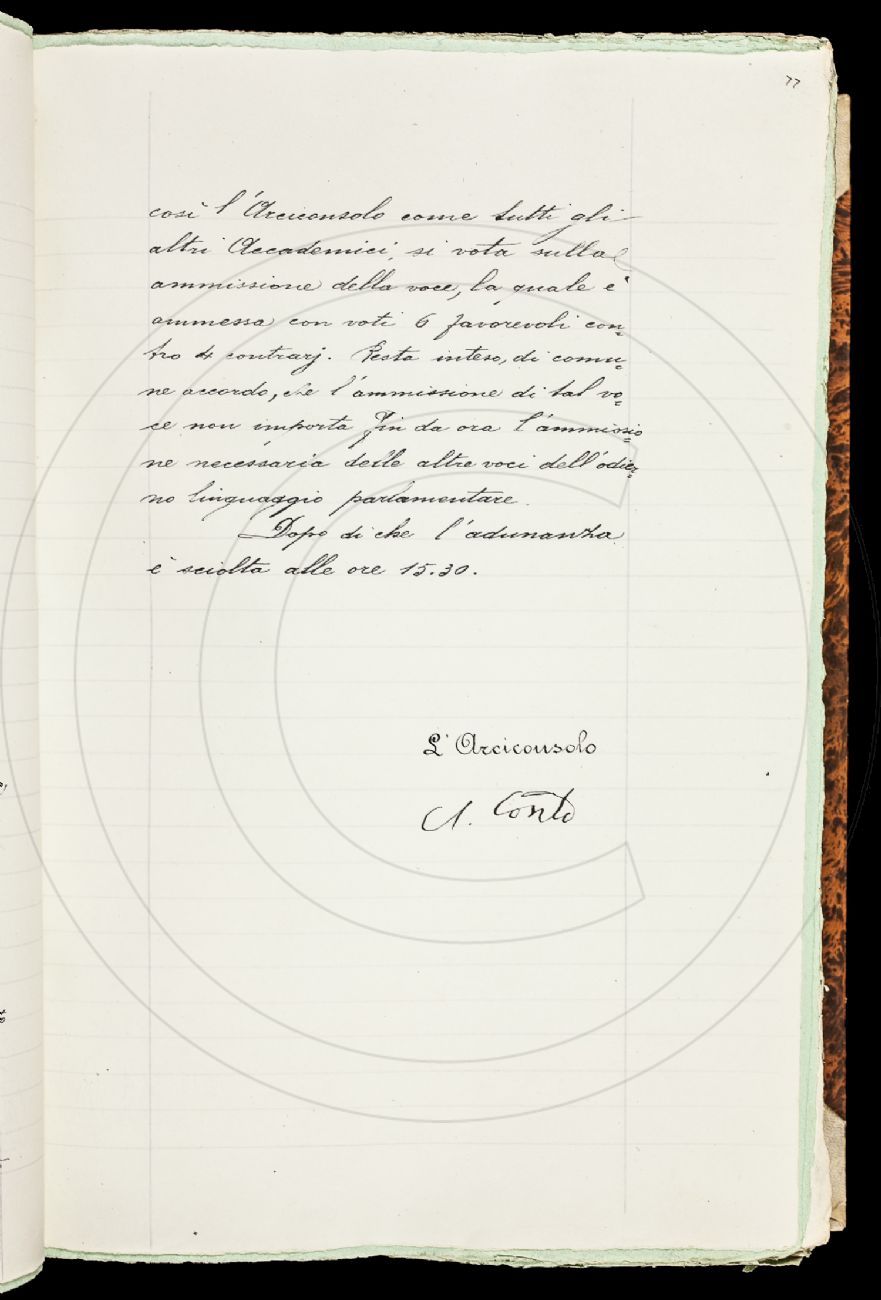 77
così l'Arciconsolo come tutti gli
altri Accademici, si vota sulla
ammissione della voce, la quale è
ammessa con voti 6 favorevoli con=
tro 4 contrarj. Resta inteso, di comu=
ne accordo, che l'ammissione di tal vo=
ce non importa fin da ora l'ammissio=
ne necessaria delle altre voci dell'odier=
no linguaggio parlamentare.
Dopo di che l'adunanza
è sciolta alle ore 15.30.
L'Arciconsolo
A. Conti